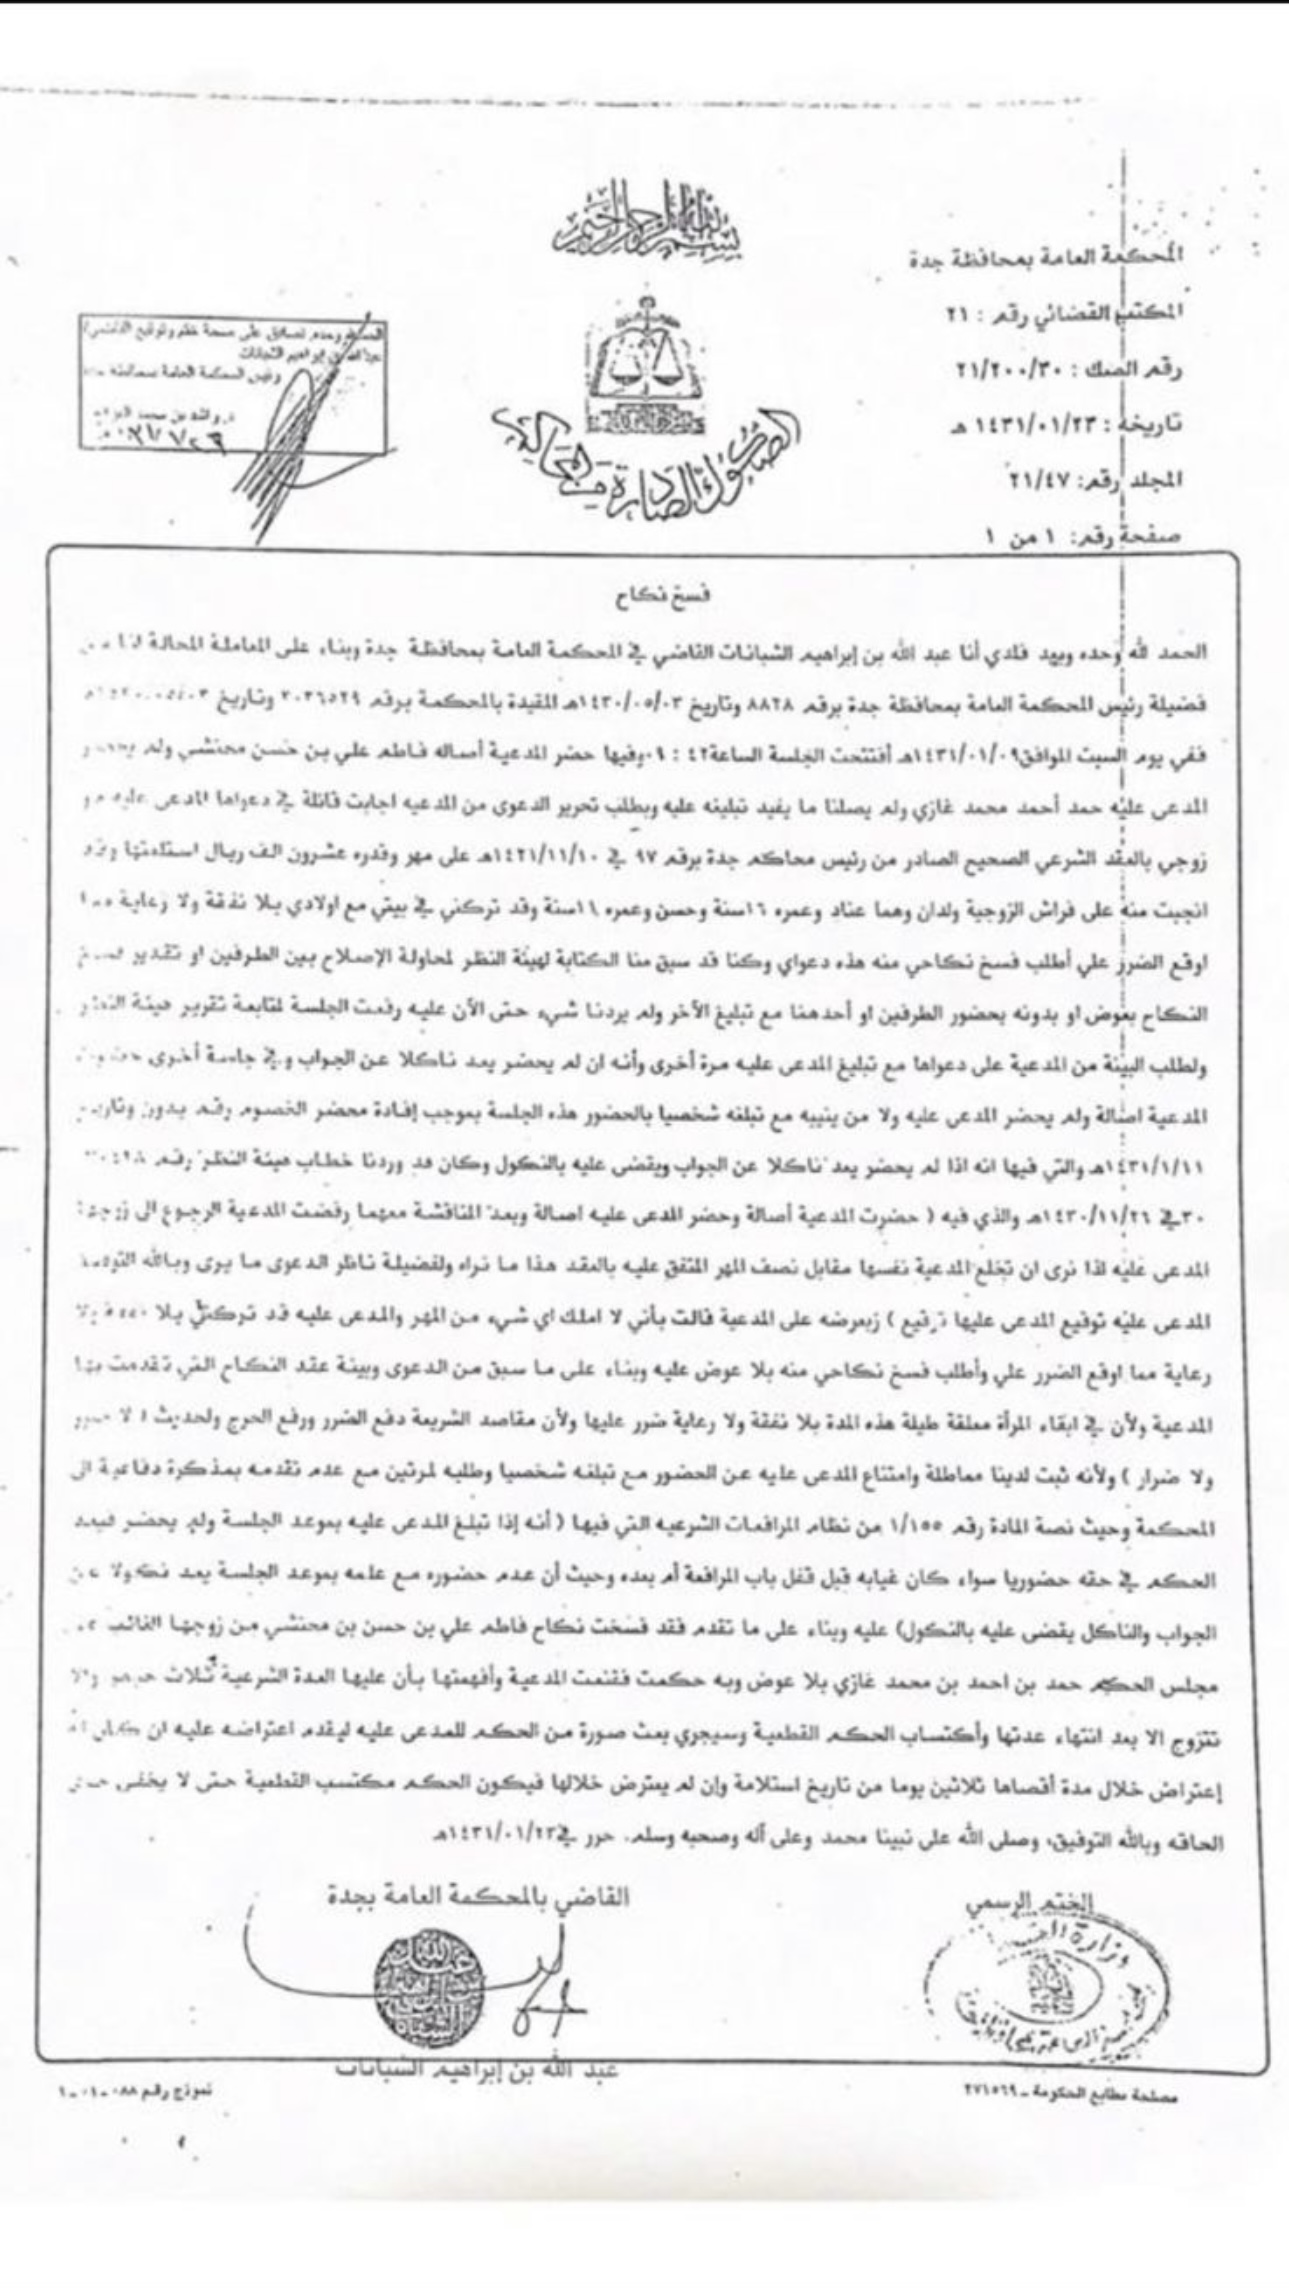 بسم الله الرحمن الرحيم
المحكمة العامة بمحافظة جدة
المكتب القضائي رقم : ٢١
رقم الصك : ٢١/٢٠٠/٣٠
تاريخه : ١٤٣١/٠١/٢٣ هـ
المجلد رقم: ٢١/٤٧
صفحة رقم: ١ من ١
على صحة ختم وتوقيع القاضي/
بن إبراهيم الشبانات
رئيس المحكمة العامة بمحافظة
فسخ نكاح
الحمد لله وحده وبعد فلدي أنا عبد الله بن إبراهيم الشبانات القاضي في المحكمة العامة بمحافظة جدة وبناء على المعاملة المحالة لنا من
فضيلة رئيس المحكمة العامة بمحافظة جدة برقم ٨٨٢٨ وتاريخ ١٤٣٠/٠٥/٠٣هـ المقيدة بالمحكمة برقم ٢٠٣٦٥٢٩ وتاريخ
ففي يوم السبت الموافق١٤٣١/٠١/٠٩هـ أفتتحت الجلسة الساعة٤٢ : ٠٩وفيها حضر المدعية أصاله فاطم علي بن حسن محنشي ولم يحضر
المدعى عليه حمد أحمد محمد غازي ولم يصلنا ما يفيد تبليغه عليه وبطلب تحرير الدعوى من المدعيه اجابت قائلة في دعواها المدعى عليه هو
زوجي بالعقد الشرعي الصحيح الصادر من رئيس محاكم جدة برقم ٩٧ في ١٤٢١/١١/١٠هـ على مهر وقدره عشرون الف ريال استلمتها وقد
انجبت منه على فراش الزوجية ولدان وهما عناد وعمره ١٦سنة وحسن وعمره ١١سنة وقد تركني في بيتي مع اولادي بلا نفقة ولا رعاية مما
اوقع الضرر علي أطلب فسخ نكاحي منه هذه دعواي وكنا قد سبق منا الكتابة لهيئة النظر لمحاولة الإصلاح بين الطرفين او تقدير فسخ
النكاح بعوض او بدونه بحضور الطرفين او أحدهما مع تبليغ الأخر ولم يردنا شيء حتى الآن عليه رفعت الجلسة لمتابعة تقرير هيئة النظر
ولطلب البينة من المدعية على دعواها مع تبليغ المدعى عليه مرة أخرى وأنه ان لم يحضر يعد ناكلا عن الجواب وفي جلسة أخرى حضرت
المدعية اصالة ولم يحضر المدعى عليه ولا من ينيبه مع تبلغه شخصيا بالحضور هذه الجلسة بموجب إفادة محضر الخصوم رقم بدون وتاريخ
١٤٣١/١/١١هـ والتي فيها انه اذا لم يحضر يعد ناكلا عن الجواب ويقضى عليه بالنكول وكان قد وردنا خطاب هيئة النظر رقم
٣٠في ١٤٣٠/١١/٢٦هـ والذي فيه ( حضرت المدعية أصالة وحضر المدعى عليه اصالة وبعد المناقشة معهما رفضت المدعية الرجوع الى زوجها
المدعى عليه لذا نرى ان تخلع المدعية نفسها مقابل نصف المهر المتفق عليه بالعقد هذا ما نراه ولفضيلة ناظر الدعوى ما يرى وبالله التوفيق
المدعى عليه توقيع المدعى عليها توقيع ) وبعرضه على المدعية قالت بأني لا املك اي شيء من المهر والمدعى عليه قد تركني بلا نفقة ولا
رعاية مما اوقع الضرر علي وأطلب فسخ نكاحي منه بلا عوض عليه وبناء على ما سبق من الدعوى وبينة عقد النكاح التي تقدمت بها
المدعية ولأن في ابقاء المرأة معلقة طيلة هذه المدة بلا نفقة ولا رعاية ضرر عليها ولأن مقاصد الشريعة دفع الضرر ورفع الحرج ولحديث ( لا ضرر
ولا ضرار ) ولأنه ثبت لدينا مماطلة وامتناع المدعى عليه عن الحضور مع تبلغه شخصيا وطلبه لمرتين مع عدم تقدمه بمذكرة دفاعية الى
المحكمة وحيث نصة المادة رقم ١/١٥٥ من نظام المرافعات الشرعيه التي فيها ( أنه إذا تبلغ المدعى عليه بموعد الجلسة ولم يحضر فيعد
الحكم في حقه حضوريا سواء كان غيابه قبل قفل باب المرافعة أم بعده وحيث أن عدم حضوره مع علمه بموعد الجلسة يعد نكولا عن
الجواب والناكل يقضى عليه بالنكول) عليه وبناء على ما تقدم فقد فسخت نكاح فاطم علي بن حسن بن محنشي من زوجها الغائب عن
مجلس الحكم حمد بن احمد بن محمد غازي بلا عوض وبه حكمت فقنعت المدعية وأفهمتها بأن عليها العدة الشرعية ثلاث حيض ولا
تتزوج الا بعد انتهاء عدتها وأكتساب الحكم القطعية وسيجري بعث صورة من الحكم للمدعى عليه ليقدم اعتراضه عليه ان كان له
إعتراض خلال مدة أقصاها ثلاثين يوما من تاريخ استلامة وإن لم يعترض خلالها فيكون الحكم مكتسب القطعية حتى لا يخفى حتى
الحاقه وبالله التوفيق، وصلى الله على نبينا محمد وعلى آله وصحبه وسلم. حرر في١٤٣١/٠١/٢٣هـ
القاضي بالمحكمة العامة بجدة
الختم الرسمي
عبد الله بن إبراهيم الشبانات
مصلحة مطابع الحكومة ـ ٢٧١٥٦٩
نموذج رقم ٠٨٨ـ٠١ـ١